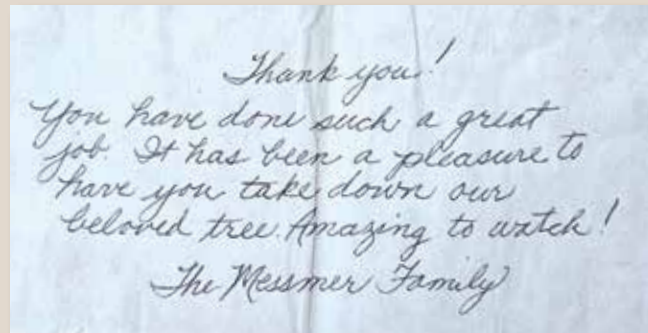 Thank you!
You have done such a great
job. It has been a pleasure to
have you take down our
beloved tree. Amazing to watch!
The Messmer Family